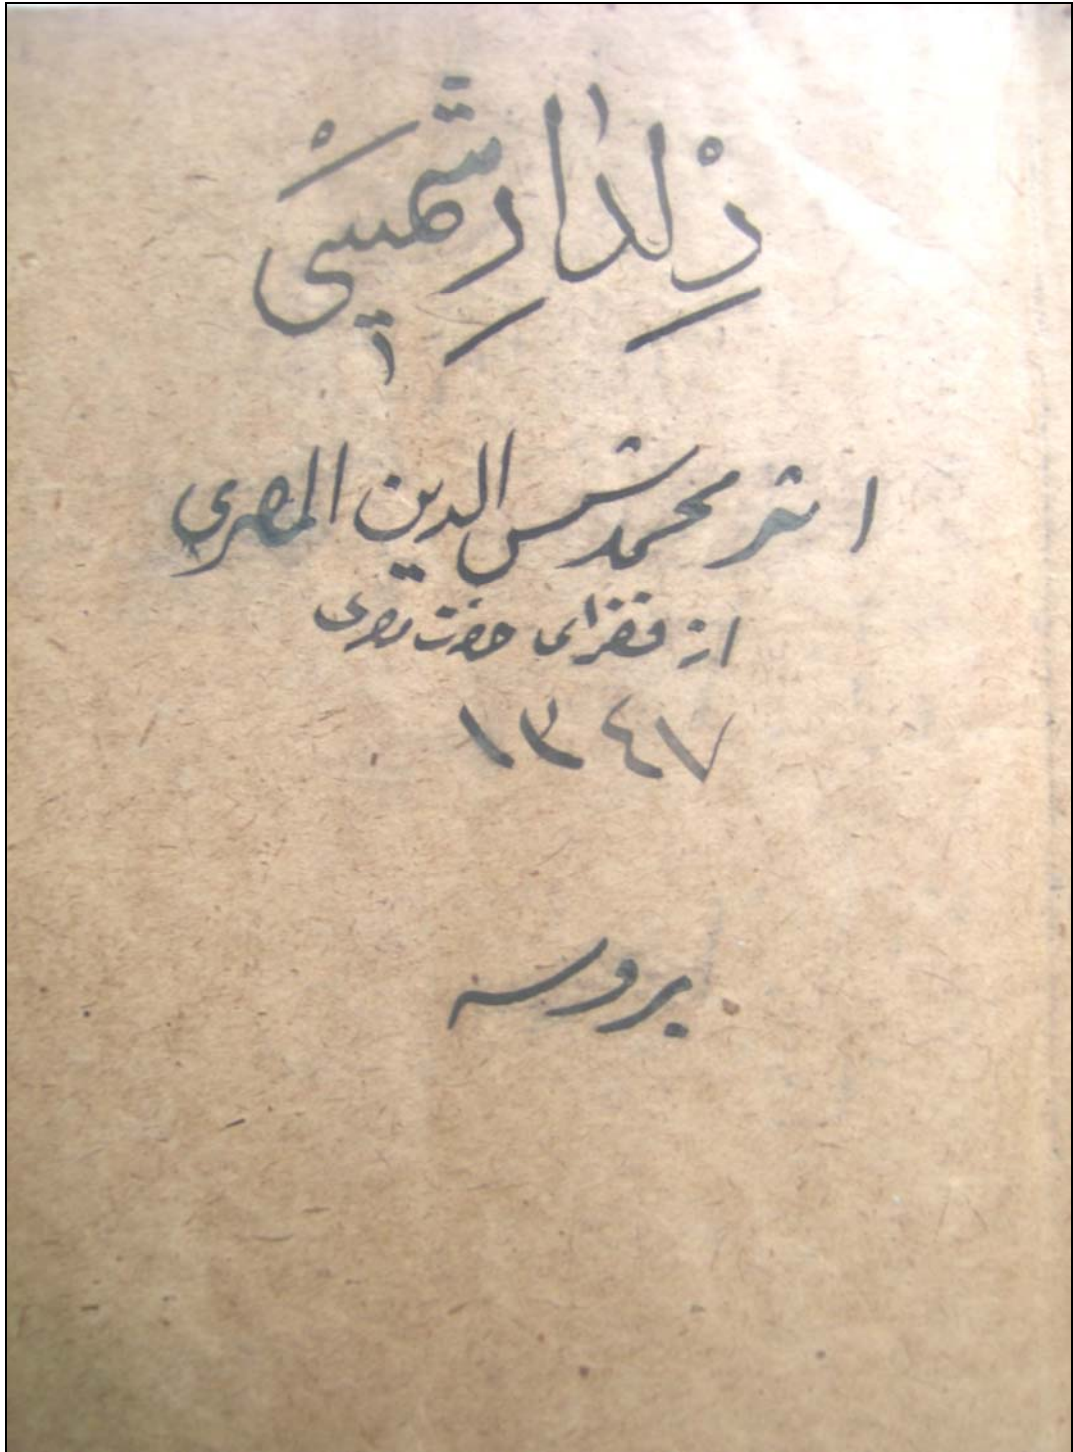 دِلْدارِ شَمْسِي
اثر محمد شمس الدين المصرى
از فقراى حضرت مصرى
١٣٤٧
بروسه